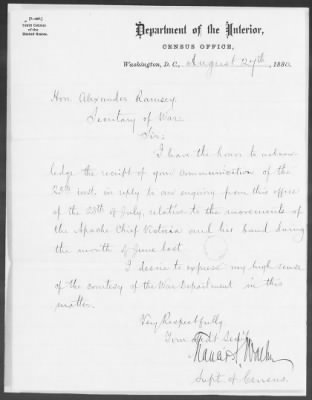 Tenth Census
of the
United States.
Department of the Interior,
CENSUS OFFICE,
Washington, D. C., August 27th, 1880.
Hon. Alexander Ramsey,
Secretary of War.
Sir:
I have the honor to acknow-
ledge the receipt of your communication of the
inst. in reply to an enquiry from this office
of the 28th of July, relative to the movements of
the Apache Chief Victoria and his band during
the month of June last.
I desire to express my high sense
of the courtesy of the War Department in this
matter.
Very Respectfully
Your Obdt Servt
Francis A. Walker
Supt. of Census.